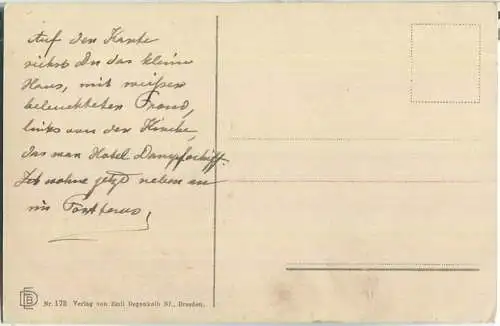 Auf der Karte
siehst Du das kleine
Haus, mit weißen
beleuchteten Front,
links von der Kirche,
das war Hotel Dampfschiff.
Ich wohne jetzt neben an
im Posthaus,
Nr. 173 Verlag von Emil Degenkolb Nf., Dresden.